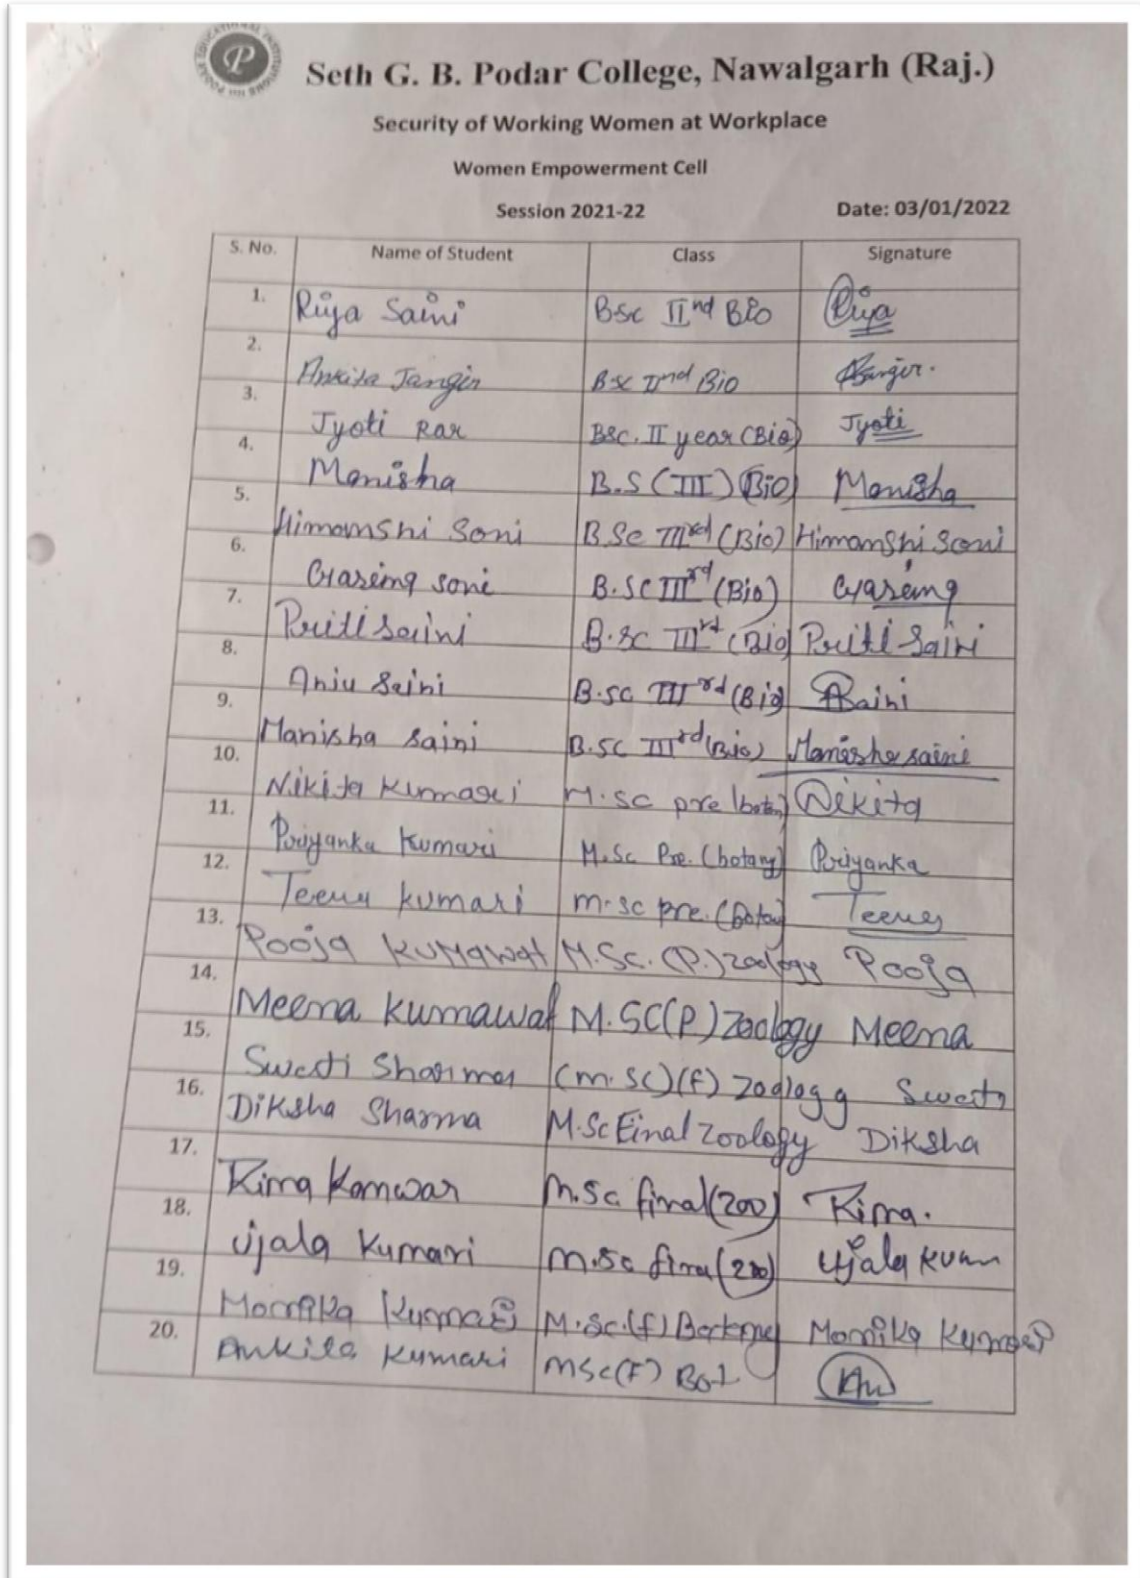 Seth G. B. Podar College, Nawalgarh (Raj.)
Security of Working Women at Workplace
Women Empowerment Cell
Session 2021-22 Date: 03/01/2022
S. No. Name of Student Class Signature
1. Riya Saini BSc IInd Bio Riya
2. Ankita Jangir BSc IInd Bio Jangir.
3. Jyoti Rar BSc. II year (Bio) Jyoti
4. Manisha B.S (III) (Bio) Manisha
5. Himanshi Soni B.Sc IIIrd (Bio) Himanshi Soni
6. soni B.Sc IIIrd (Bio)
7. Priti Saini B.sc IIIrd (Bio) Priti Saini
8. Anju Saini B.sc IIIrd (Bio) ASaini
9. Manisha Saini B.SC IIIrd (Bio) Manisha saini
10. Nikita Kumari M.sc pre (botany) Nikita
11. Priyanka Kumari M.Sc Pre. (botany) Priyanka
12. Teenu kumari m.sc pre. (botany) Teenu
13. Pooja Kumawat M.Sc. (P.) zoology Pooja
14. Meena Kumawat M.SC(P.) Zoology Meena
15. Swati Sharma (m.sc)(f) zoology Swati
16. Diksha Sharma M.Sc Final Zoology Diksha
17. Kanwar M.Sc final (zoo)
18. Ujala Kumari M.Sc final (zoo) Ujala Kum
19. Monika Kumari M.Sc.(f) Monika Kumari
20. Ankita Kumari MSc(F) Bot.